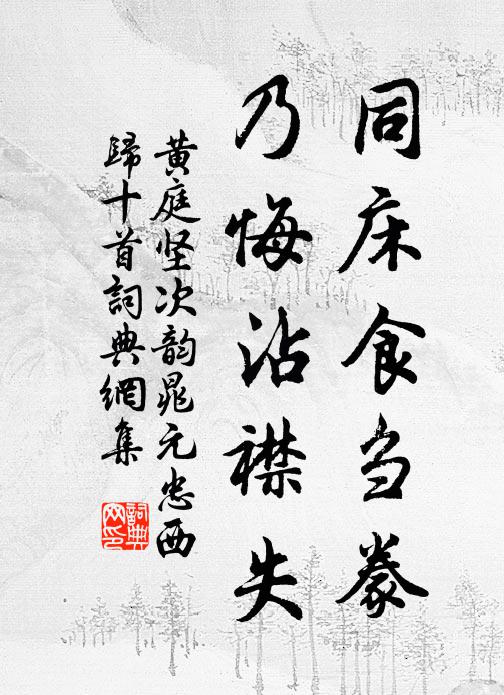 同床食刍豢
乃悔沾襟失
黄庭坚次韵晁元忠西
歸十首詞典網集
詞典网印